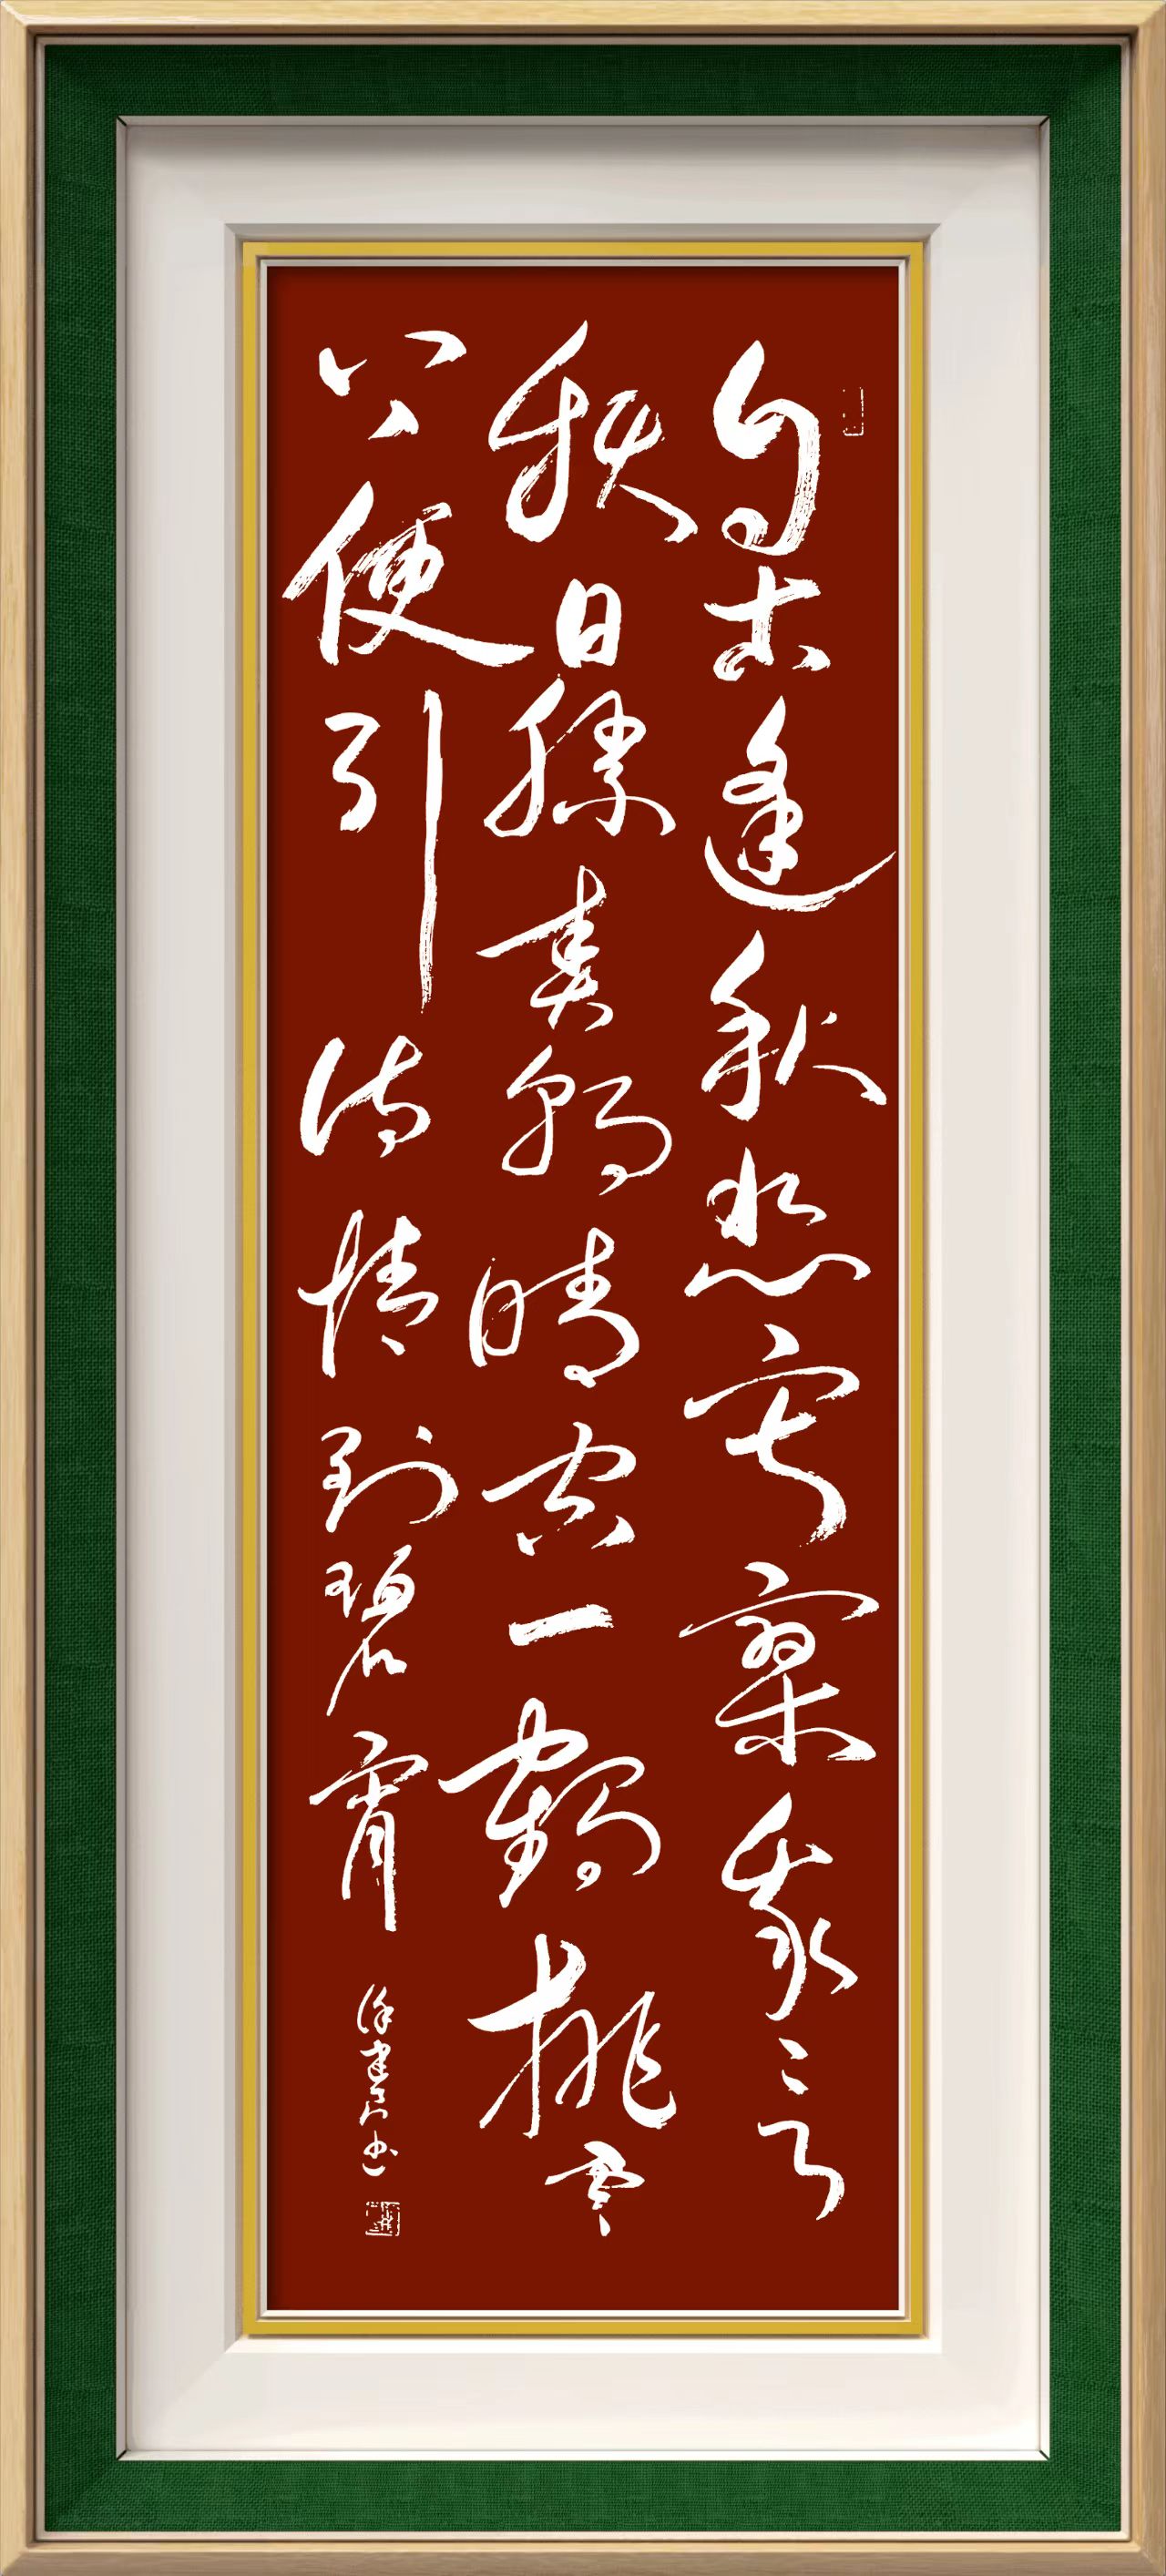 自古逢秋悲寂寥我言
秋日勝春朝晴空一鶴排雲
上便引詩情到碧霄
徐建書